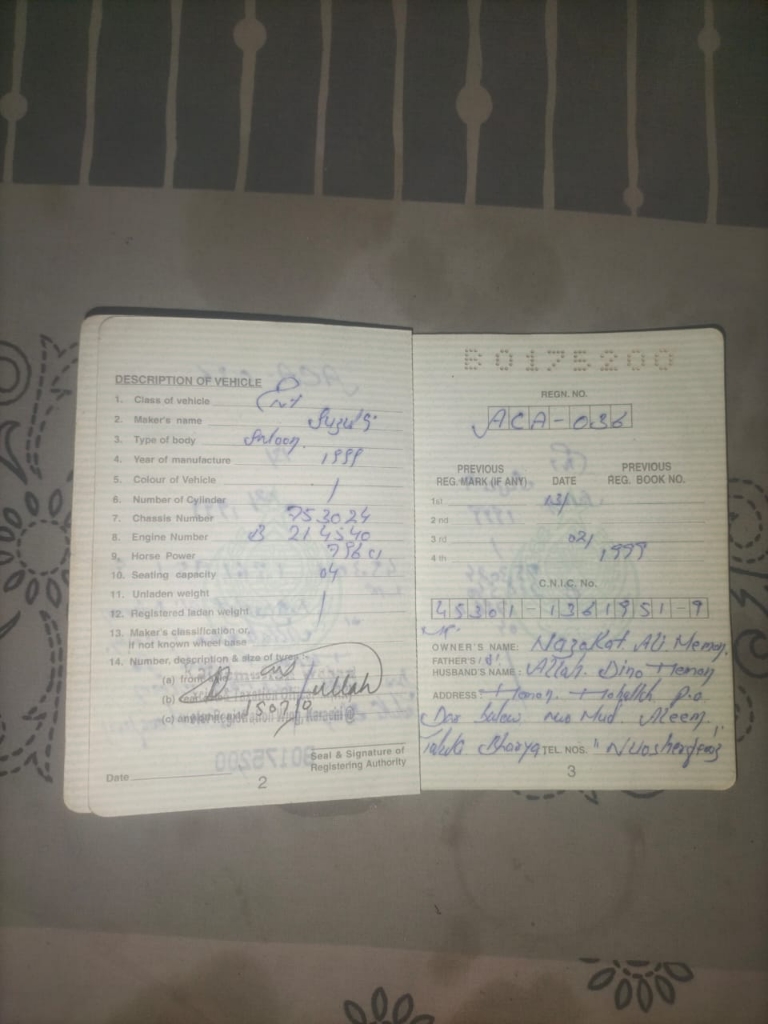 DESCRIPTION OF VEHICLE
1. Class of vehicle
2. Maker's name Suzuki
3. Type of body Saloon
4. Year of manufacture 1999
5. Colour of Vehicle
6. Number of Cylinder
7. Chassis Number 753024
8. Engine Number 214540
9. Horse Power 796
10. Seating capacity 04
11. Unladen weight
12. Registered laden weight
13. Maker's classification or,
if not known wheel base
14. Number, description & size of tyres
(a) front
(b)
(c)
Seal & Signature of
Registering Authority
Date
2
B0175200
REGN. NO.
ACA-036
PREVIOUS REG. MARK (IF ANY) DATE PREVIOUS REG. BOOK NO.
1st 03/
2nd
3rd 02/
4th 1999
C.N.I.C. No.
45301-1361951-9
OWNER'S NAME: Nazakat Ali Memon
FATHER'S /
HUSBAND'S NAME: Allah Dino Memon
ADDRESS: Memon Mohallah P.O.
Mud. Aleem
Taluka Bharya TEL. NOS.
3